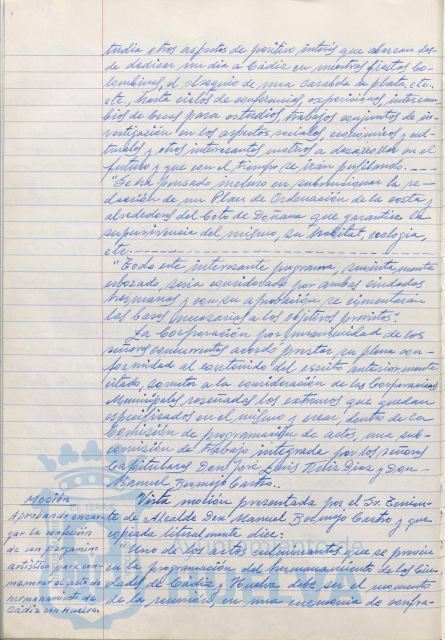 tudia otros aspectos de positivo interés que abarcan des-
de dedicar un dia a Cádiz en nuestras fiestas Co-
lombinas, el obsequio de una carabela de plata, etc.
etc., hasta ciclos de conferencias, exposiciones, intercam-
bios de becas para estudios, trabajos conjuntos de in-
vestigación en los aspectos sociales, económicos, cul-
turales y otros interesantes metros a desarrollar en el
futuro y que con el tiempo se irán perfilando.
"Se ha pensado incluso en subvencionar la re-
dacción de un Plan de Ordenación de la costa y
alrededores del Coto de Doñana que garantice la
supervivencia del mismo, su habitat, ecologia,
etc.
"Todo este interesante programa, sucintamente
esbozado, seria considerado por ambas ciudades
hermanas y con su aprobación se cimentarian
las bases necesarias a los objetivos previstos".
La Corporación por unanimidad de los
señores concurrentes acordó prestar su plena con-
formidad al contenido del escrito anteriormente
citado, someter a la consideración de las Corporaciones
Municipales reseñadas los extremos que quedan
especificados en el mismo y crear, dentro de la
Comisión de programación de actos, una sub-
comisión de trabajo integrada por los señores
Capitulares Don José Luis Ruiz Diaz y Don
Manuel Bermejo Castro.
Moción
Aprobando encar-
gar la confección
de un pergamino
artistico para con-
memorar el acto de
hermanamiento de
Cádiz con Huelva.
Vista moción presentada por el Sr. Tenien-
te de Alcalde Don Manuel Bermejo Castro y que
copiada literalmente dice:
"Uno de los actos culminantes que se prevén
en la programación del hermanamiento de las Ciu-
dades de Cádiz y Huelva debe ser el momento
de la reunión, en una ceremonia de confra-